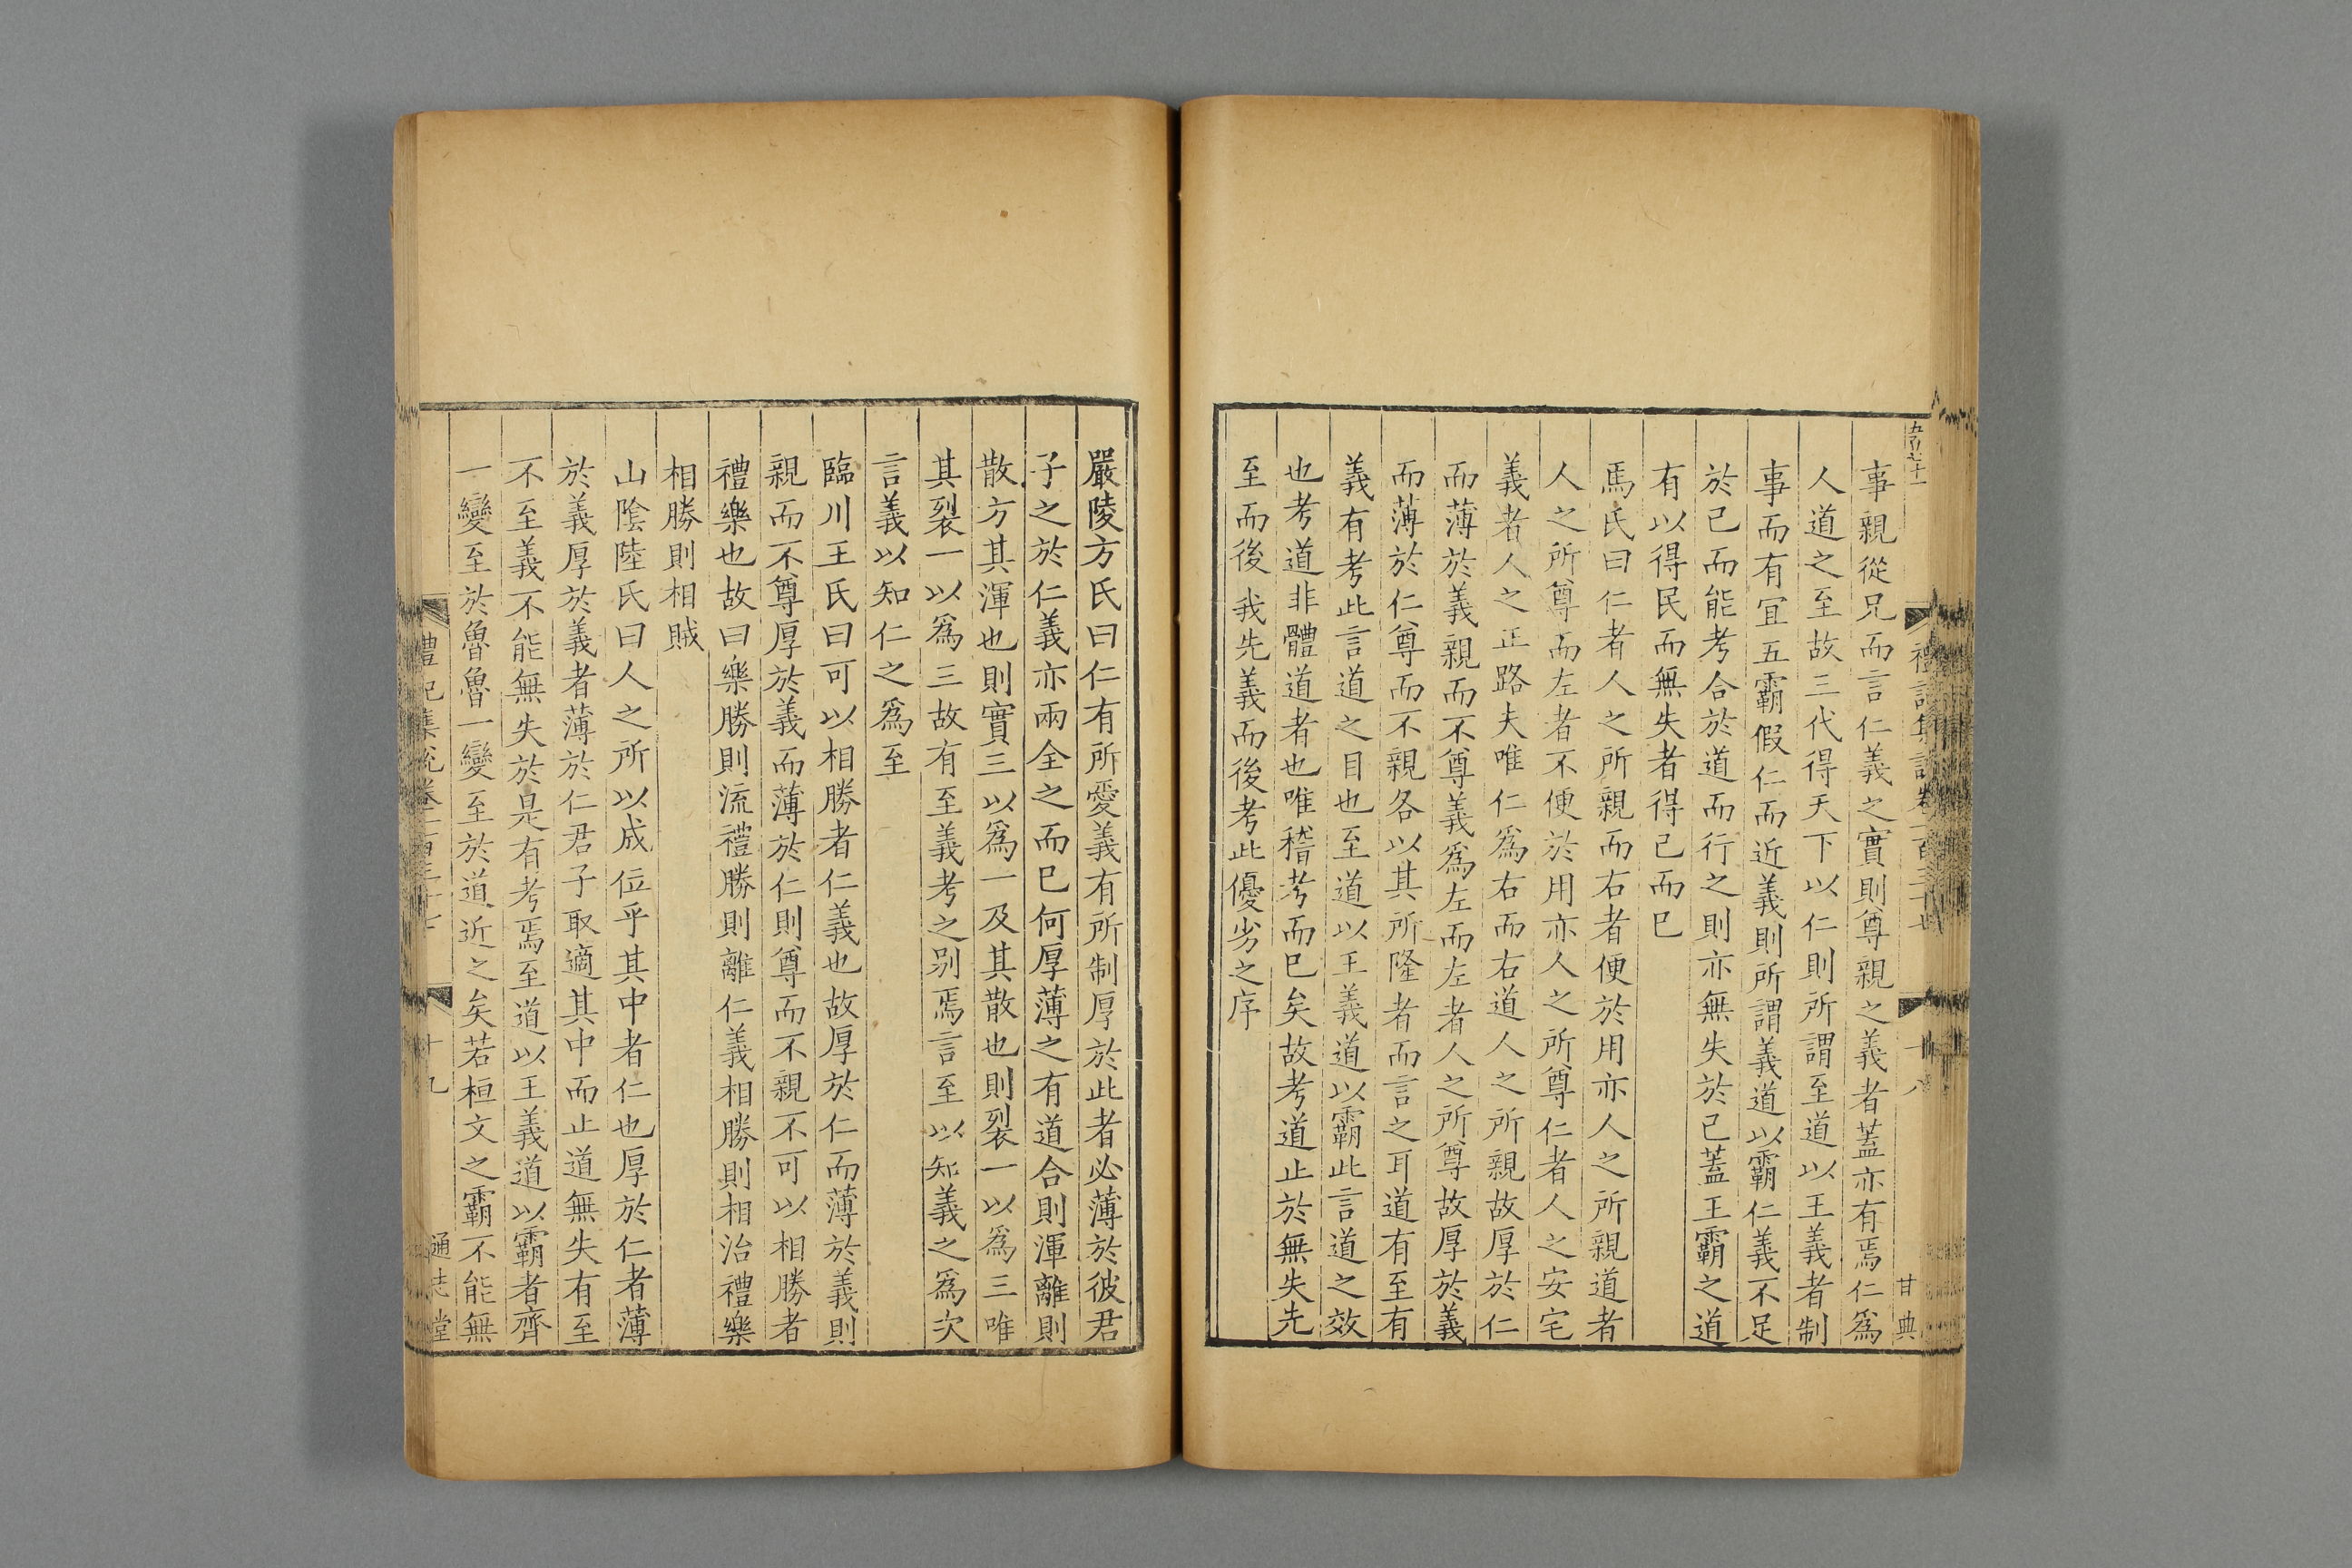 事親從兄而言仁義之實則尊親之義者蓋亦有焉仁爲
人道之至故三代得天下以仁則所謂至道以王義者制
事而有宜五霸假仁而近義則所謂義道以霸仁義不足
於己而能考合於道而行之則亦無失於己蓋王霸之道
有以得民而無失者得已而已
馬氏曰仁者人之所親而右者便於用亦人之所親道者
人之所尊而左者不便於用亦人之所尊仁者人之安宅
義者人之正路夫唯仁爲右而右道人之所親故厚於仁
而薄於義親而不尊義爲左而左者人之所尊故厚於義
而薄於仁尊而不親各以其所隆者而言之耳道有至有
義有考此言道之目也至道以王義道以霸此言道之效
也考道非體道者也唯稽考而已矣故考道止於無失先
至而後我先義而後考此優劣之序
嚴陵方氏曰仁有所愛義有所制厚於此者必薄於彼君
子之於仁義亦兩全之而已何厚薄之有道合則渾離則
散方其渾也則實三以爲一及其散也則裂一以爲三唯
其裂一以爲三故有至義考之别焉言至以知義之爲次
言義以知仁之爲至
臨川王氏曰可以相勝者仁義也故厚於仁而薄於義則
親而不尊厚於義而薄於仁則尊而不親不可以相勝者
禮樂也故曰樂勝則流禮勝則離仁義相勝則相治禮樂
相勝則相賊
山陰陸氏曰人之所以成位乎其中者仁也厚於仁者薄
於義厚於義者薄於仁君子取適其中而止道無失有至
不至義不能無失於是有考焉至道以王義道以霸者齊
一變至於魯魯一變至於道近之矣若桓文之霸不能無
禮記集說卷一百三十七 十九 通志堂